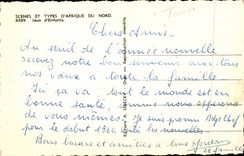 SCENES ET TYPES D'AFRIQUE DU NORD.
8389. Jeux d'Enfants.
Chers Amis.
Au seuil de l'année nouvelle
recevez notre bon souvenir avec tous
nos vœux a toute la famille
Ici ça va, tout le monde est en
bonne santé, nous espérons
de vous mêmes. Je suis permu
pour le début 1960 les nouvelles.
Bons baisers et amitiés a tous